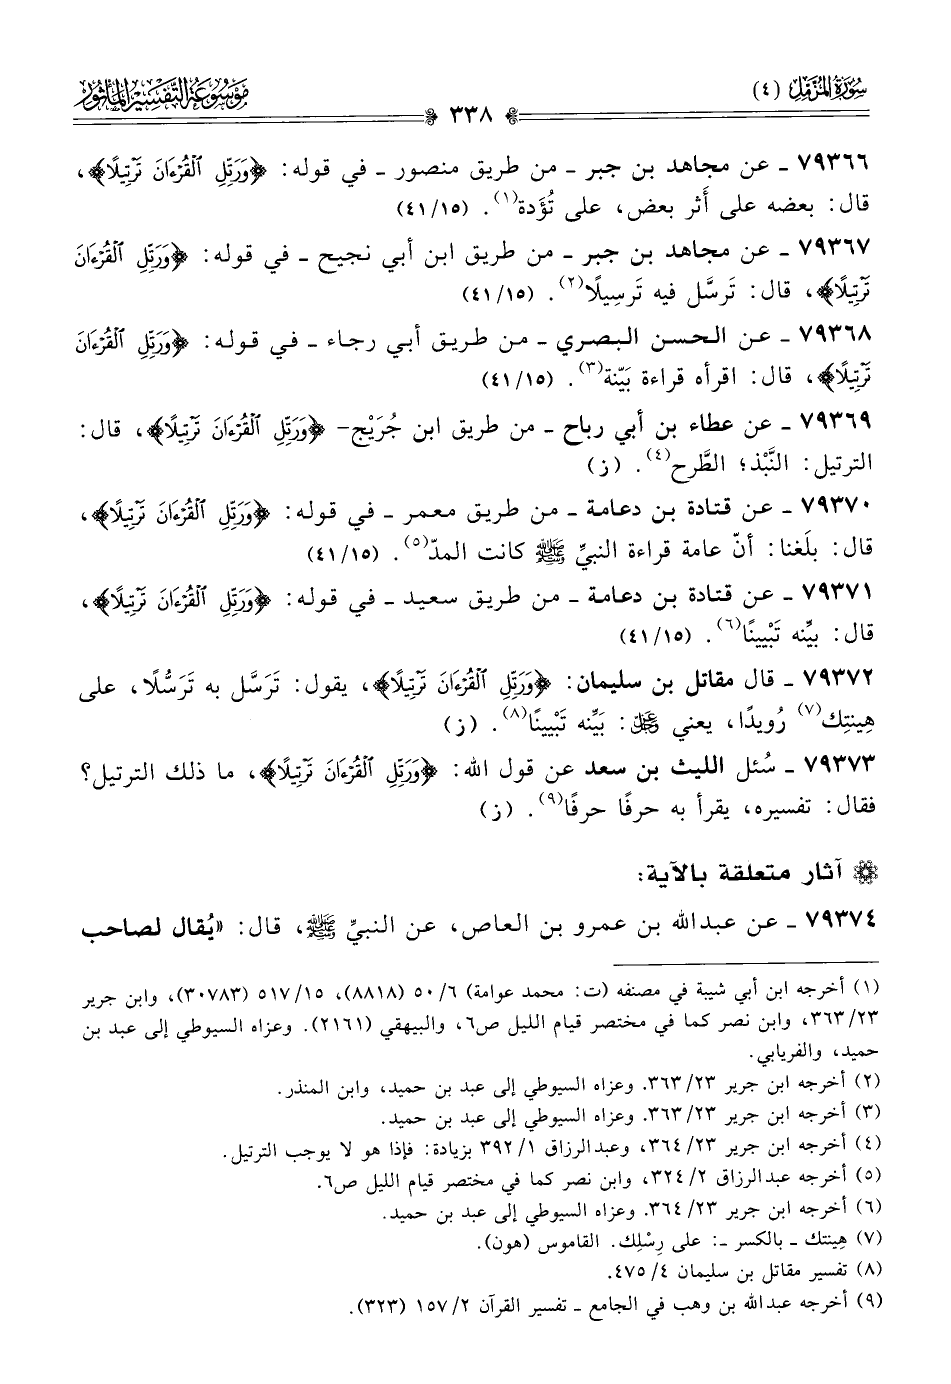 سُورَةُ المُزَّمِّل (٤)
٣٣٨
مَوْسُوعَةُ التَّفْسِيرِ المَأْثُور
٧٩٣٦٦ ـ عن مجاهد بن جبر ـ من طريق منصور ـ في قوله: ﴿وَرَتِّلِ ٱلْقُرْءَانَ تَرْتِيلًا﴾،
قال: بعضه على أَثر بعض، على تُؤَدة(١). (٤١/١٥)
٧٩٣٦٧ ـ عن مجاهد بن جبر ـ من طريق ابن أبي نجيح ـ في قوله: ﴿وَرَتِّلِ ٱلْقُرْءَانَ
تَرْتِيلًا﴾، قال: تَرسَّل فيه تَرسِيلًا(٢). (٤١/١٥)
٧٩٣٦٨ ـ عن الحسن البصري ـ من طريق أبي رجاء ـ في قوله: ﴿وَرَتِّلِ ٱلْقُرْءَانَ
تَرْتِيلًا﴾، قال: اقرأه قراءة بَيّنة(٣). (٤١/١٥)
٧٩٣٦٩ ـ عن عطاء بن أبي رباح ـ من طريق ابن جُرَيْج- ﴿وَرَتِّلِ ٱلْقُرْءَانَ تَرْتِيلًا﴾، قال:
الترتيل: النَّبْذ؛ الطَّرح(٤). (ز)
٧٩٣٧٠ ـ عن قتادة بن دعامة ـ من طريق معمر ـ في قوله: ﴿وَرَتِّلِ ٱلْقُرْءَانَ تَرْتِيلًا﴾،
قال: بلَغنا: أنّ عامة قراءة النبيِّ ﷺ كانت المدّ(٥). (٤١/١٥)
٧٩٣٧١ ـ عن قتادة بن دعامة ـ من طريق سعيد ـ في قوله: ﴿وَرَتِّلِ ٱلْقُرْءَانَ تَرْتِيلًا﴾،
قال: بيِّنه تَبْيينًا(٦). (٤١/١٥)
٧٩٣٧٢ ـ قال مقاتل بن سليمان: ﴿وَرَتِّلِ ٱلْقُرْءَانَ تَرْتِيلًا﴾، يقول: تَرَسَّل به تَرَسُّلًا، على
هِينتِك(٧) رُويدًا، يعني ﷿: بَيِّنه تَبْيينًا(٨). (ز)
٧٩٣٧٣ ـ سُئل الليث بن سعد عن قول الله: ﴿وَرَتِّلِ ٱلْقُرْءَانَ تَرْتِيلًا﴾، ما ذلك الترتيل؟
فقال: تفسيره، يقرأ به حرفًا حرفًا(٩). (ز)
آثار متعلقة بالآية:
٧٩٣٧٤ ـ عن عبدالله بن عمرو بن العاص، عن النبيِّ ﷺ، قال: «يُقال لصاحب
(١) أخرجه ابن أبي شيبة في مصنفه (ت: محمد عوامة) ٦/ ٥٠ (٨٨١٨)، ١٥/ ٥١٧ (٣٠٧٨٣)، وابن جرير
٢٣/ ٣٦٣، وابن نصر كما في مختصر قيام الليل ص٦، والبيهقي (٢١٦١). وعزاه السيوطي إلى عبد بن
حميد، والفريابي.
(٢) أخرجه ابن جرير ٢٣/ ٣٦٣. وعزاه السيوطي إلى عبد بن حميد، وابن المنذر.
(٣) أخرجه ابن جرير ٢٣/ ٣٦٣. وعزاه السيوطي إلى عبد بن حميد.
(٤) أخرجه ابن جرير ٢٣/ ٣٦٤، وعبدالرزاق ١/ ٣٩٢ بزيادة: فإذا هو لا يوجب الترتيل.
(٥) أخرجه عبدالرزاق ٢/ ٣٢٤، وابن نصر كما في مختصر قيام الليل ص٦.
(٦) أخرجه ابن جرير ٢٣/ ٣٦٤. وعزاه السيوطي إلى عبد بن حميد.
(٧) هِينتك ـ بالكسر ـ: على رِسْلِك. القاموس (هون).
(٨) تفسير مقاتل بن سليمان ٤/ ٤٧٥.
(٩) أخرجه عبدالله بن وهب في الجامع ـ تفسير القرآن ٢/ ١٥٧ (٣٢٣).